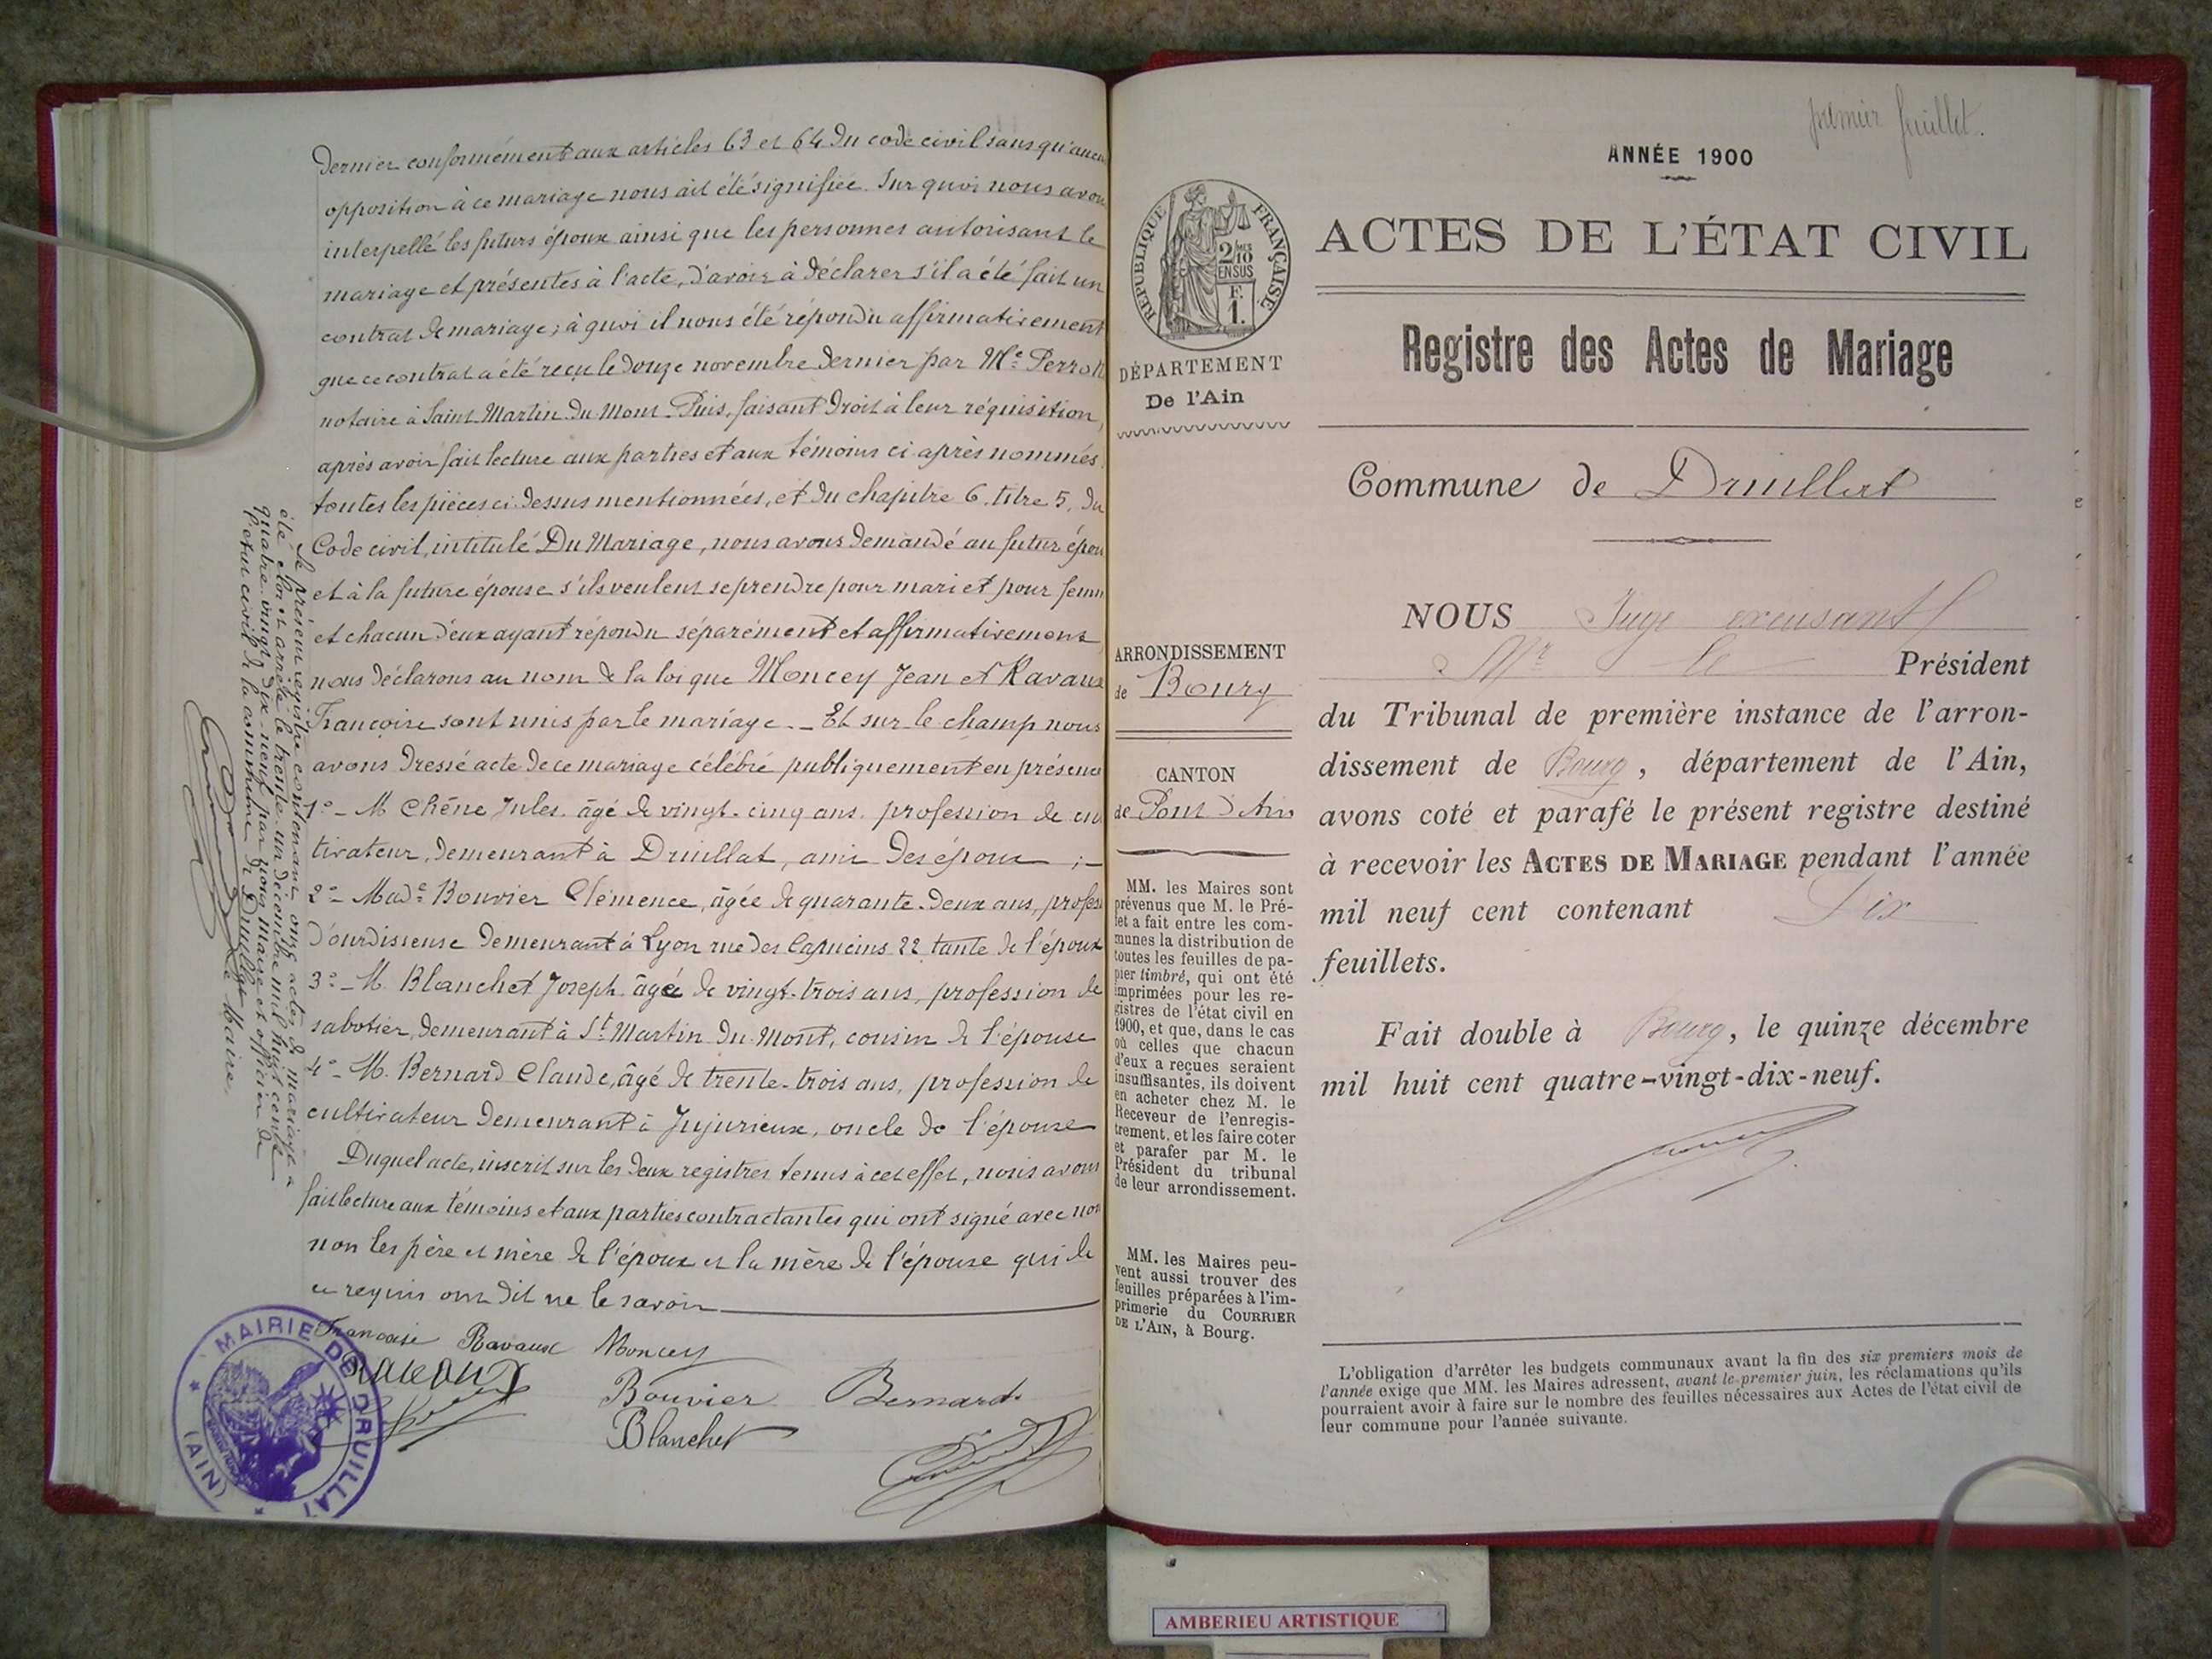 Dernier conformément aux articles 63 et 64 du code civil sans qu'aucu
opposition à ce mariage nous ait été signifiée. Sur quoi nous avon
interpellé les futurs époux ainsi que les personnes autorisant le
mariage et présentes à l'acte, d'avoir à déclarer s'il a été fait un
contrat de mariage; à quoi il nous été répondu affirmativement
que ce contrat a été reçu le douze novembre dernier par Me Perro
notaire à Saint Martin du Mont. Puis, faisant droit à leur réquisition,
après avoir fait lecture aux parties et aux témoins ci après nommés
toutes les pièces ci-dessus mentionnées, et du chapitre 6. titre 5, du
Code civil, intitulé Du Mariage, nous avons demandé au futur épou
et à la future épouse s'ils veulent se prendre pour mari et pour femm
et chacun d'eux ayant répondu séparément et affirmativement
nous déclarons au nom de la loi que Moncey Jean et Ravaux
Françoise sont unis par le mariage. — Et sur le champ nous
avons dressé acte de ce mariage célébré publiquement en présence
1° – M Chêne Jules. âgé de vingt-cinq ans. profession de cul
tivateur, demeurant à Druillat, ami des époux ; –
2° – Made Bouvier Clémence, âgée de quarante-deux ans, profess
d'ourdisseuse demeurant à Lyon rue des Capucins 22 tante de l'époux
3° – M. Blanchet Joseph. âgée de vingt-trois ans, profession de
sabotier, demeurant à St Martin du Mont, cousin de l'épouse
4° – M. Bernard Claude, âgé de trente-trois ans, profession de
cultivateur demeurant à Jujurieux, oncle de l'épouse
Duquel acte, inscrit sur les deux registres tenus à cet effet, nous avons
fait lecture aux témoins et aux parties contractantes qui ont signé avec nou
non les père et mère de l'époux et la mère de l'épouse qui de
ce requis ont dit ne le savoir
Françoise Ravaux Moncey
Ravaux
Bouvier Bernard
Blanchet
MAIRIE DE DRUILLAT
(AIN)
Le présent registre contenant onze actes de mariage a
été clos et arrêté le trente-un décembre mil huit cent
quatre-vingt-dix-neuf par nous Maire et officier de
l'état civil de la commune de Druillat
Le Maire,
premier feuillet.
ANNÉE 1900
ACTES DE L'ÉTAT CIVIL
Registre des Actes de Mariage
RÉPUBLIQUE FRANÇAISE
2/10 MES
EN SUS
F.
1.
DÉPARTEMENT
De l'Ain
Commune de Druillat
ARRONDISSEMENT
de Bourg
CANTON
de Pont d'Ain
NOUS Juge
Mr le Président
du Tribunal de première instance de l'arron-
dissement de Bourg, département de l'Ain,
avons coté et parafé le présent registre destiné
à recevoir les ACTES DE MARIAGE pendant l'année
mil neuf cent contenant Dix
feuillets.
Fait double à Bourg, le quinze décembre
mil huit cent quatre-vingt-dix-neuf.
MM. les Maires sont
prévenus que M. le Pré-
fet a fait entre les com-
munes la distribution de
toutes les feuilles de pa-
pier timbré, qui ont été
imprimées pour les re-
gistres de l'état civil en
1900, et que, dans le cas
où celles que chacun
d'eux a reçues seraient
insuffisantes, ils doivent
en acheter chez M. le
Receveur de l'enregis-
trement, et les faire coter
et parafer par M. le
Président du tribunal
de leur arrondissement.
MM. les Maires peu-
vent aussi trouver des
feuilles préparées à l'im-
primerie du COURRIER
DE L'AIN, à Bourg.
L'obligation d'arrêter les budgets communaux avant la fin des six premiers mois de
l'année exige que MM. les Maires adressent, avant le premier juin, les réclamations qu'ils
pourraient avoir à faire sur le nombre des feuilles nécessaires aux Actes de l'état civil de
leur commune pour l'année suivante.
AMBERIEU ARTISTIQUE